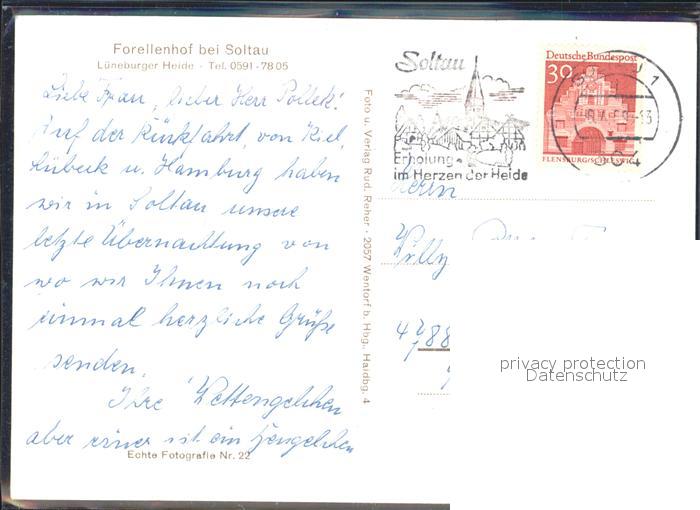 Forellenhof bei Soltau
Lüneburger Heide - Tel. 0591-7805
Liebe Frau, lieber Herr Pollek!
Auf der Rückfahrt, von Kiel,
Lübeck u. Hamburg haben
wir in Soltau unsere
letzte Übernachtung von
wo wir Ihnen noch
einmal herzliche Grüße
senden.
Ihre
aber einer ist ein
Echte Fotografie Nr. 22
Foto u. Verlag Rud. Reher · 2057 Wentorf b. Hbg., Haidbg. 4
Soltau
Erholung
im Herzen der Heide
Deutsche Bundespost
30
FLENSBURG/SCHLESWIG
Herrn
Willy
privacy protection
Datenschutz